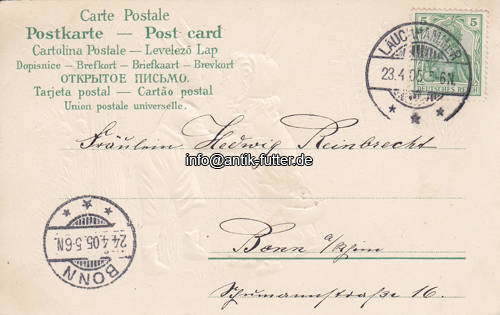 Carte Postale
Postkarte — Post card
Cartolina Postale — Levelező Lap
Dopisnice — Brefkort — Briefkaart — Brevkort
ОТКРЫТОЕ ПИСЬМО.
Tarjeta postal — Cartão postal
Union postale universelle.
5 5
DEUTSCHES REICH
LAUCHHAMMER
23.4.05.5-6N.
Fräulein Hedwig Reinbrecht
info@antik-futter.de
24.4.05.5-6N.
BONN
Bonn a/Rhein
Schumannstraße 16.